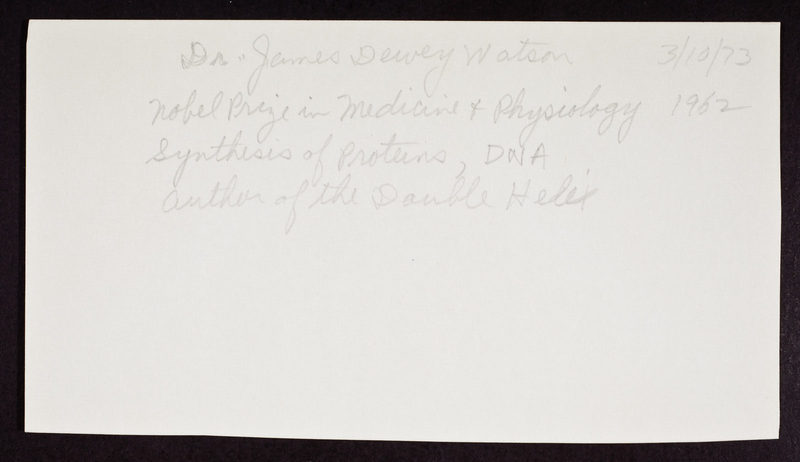 Dr. James Dewey Watson 3/10/73
Nobel Prize in Medicine & Physiology 1962
Synthesis of Proteins, DNA
author of the Double Helix